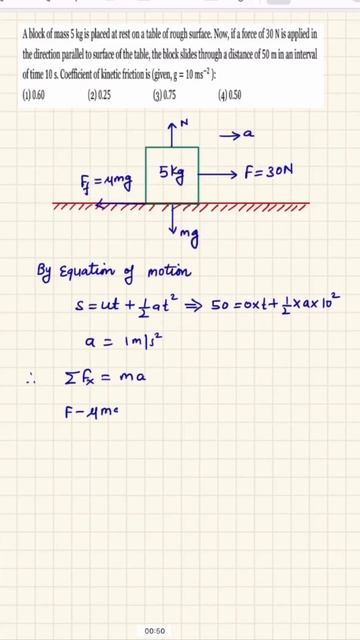 A block of mass 5 kg is placed at rest on a table of rough surface. Now, if a force of 30 N is applied in
the direction parallel to surface of the table, the block slides through a distance of 50 m in an interval
of time 10 s. Coefficient of kinetic friction is (given, g = 10 ms⁻²):
(1) 0.60 (2) 0.25 (3) 0.75 (4) 0.50
N
→a
F_f = μmg
5kg
F = 30N
mg
By Equation of motion
s = ut + 1/2 at² ⇒ 50 = 0xt + 1/2 x a x 10²
a = 1 m/s²
∴ ΣFx = ma
F - μm
00:50